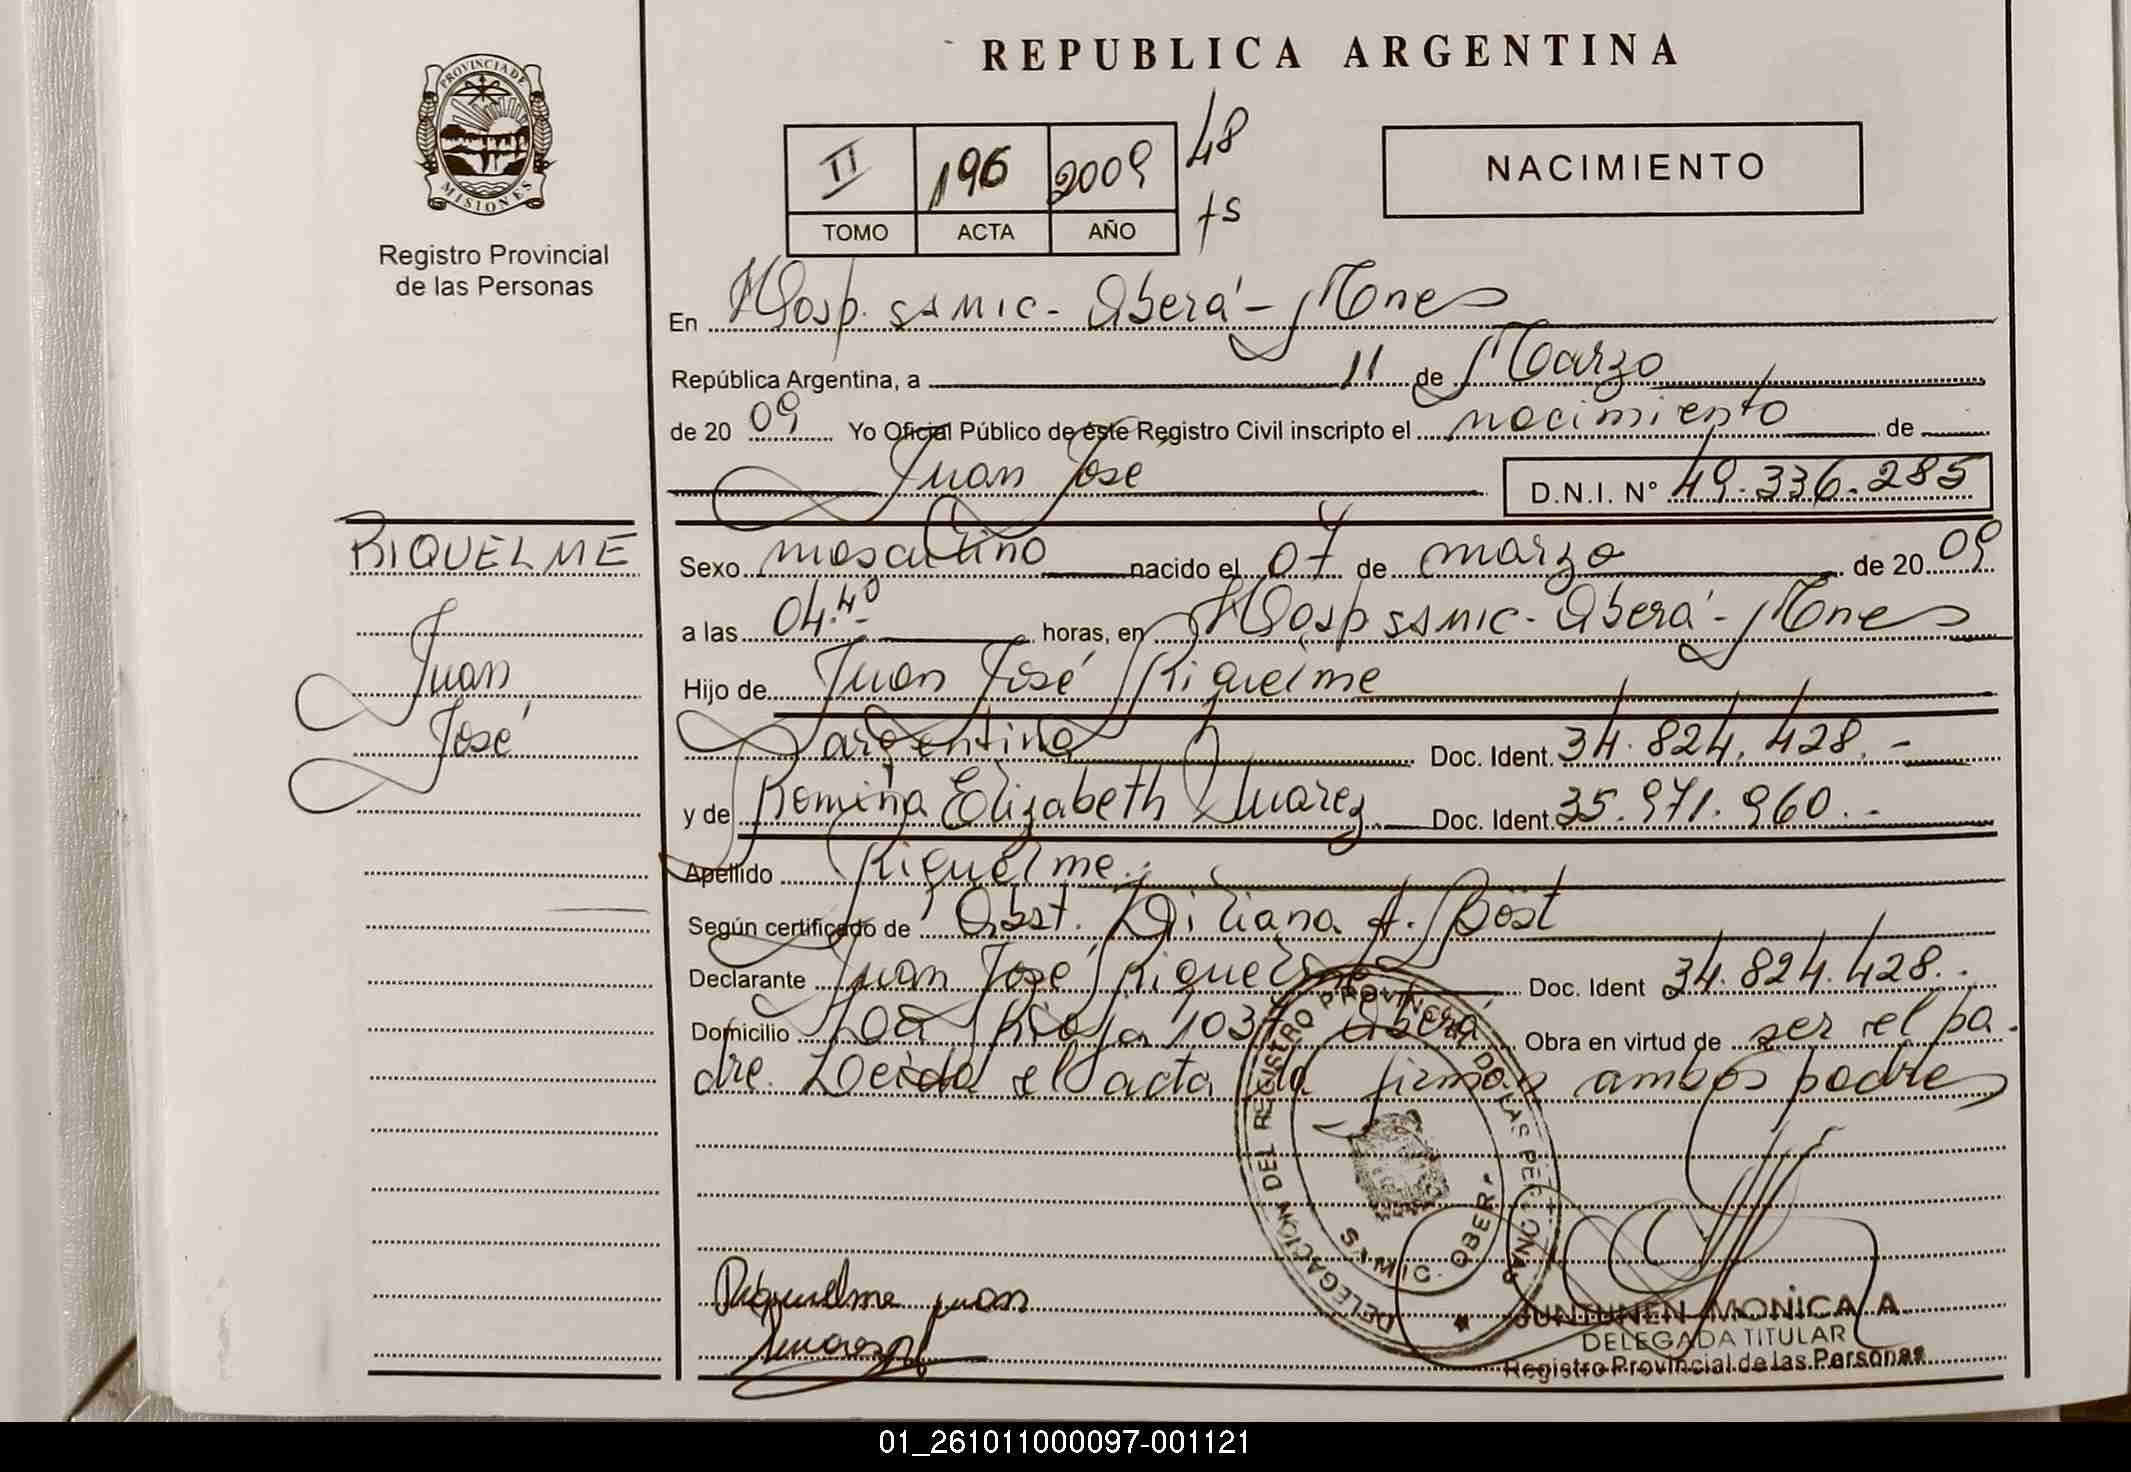 REPUBLICA ARGENTINA
PROVINCIA DE
MISIONES
Registro Provincial
de las Personas
II 196 2009 48
TOMO ACTA AÑO
NACIMIENTO
En Hosp. SAMIC - Oberá - Mnes
República Argentina, a 11 de Marzo
de 2009 Yo Oficial Público de éste Registro Civil inscripto el nacimiento de
Juan José D.N.I. Nº 49.336.285
RIQUELME
Juan
José
Sexo masculino nacido el 07 de marzo de 2009
a las 04.40 horas, en Hosp SAMIC - Oberá - Mnes
Hijo de Juan José Riquelme
argentina Doc. Ident. 34.824.428.-
y de Romina Elizabeth Suarez Doc. Ident. 35.971.960.-
Apellido Riquelme.
Según certificado de Obst. Liliana A. Böst
Declarante Juan José Riquelme Doc. Ident 34.824.428.-
Domicilio La Rioja 1037 Oberá Obra en virtud de ser el pa-
dre. Leída el acta la firman ambos padres
DELEGACION DEL REGISTRO PROVINCIAL DE LAS PERSONAS
SAMIC - OBERA
Riquelme juan
JUNTUNEN MONICA A.
DELEGADA TITULAR
Registro Provincial de las Personas
01_261011000097-001121